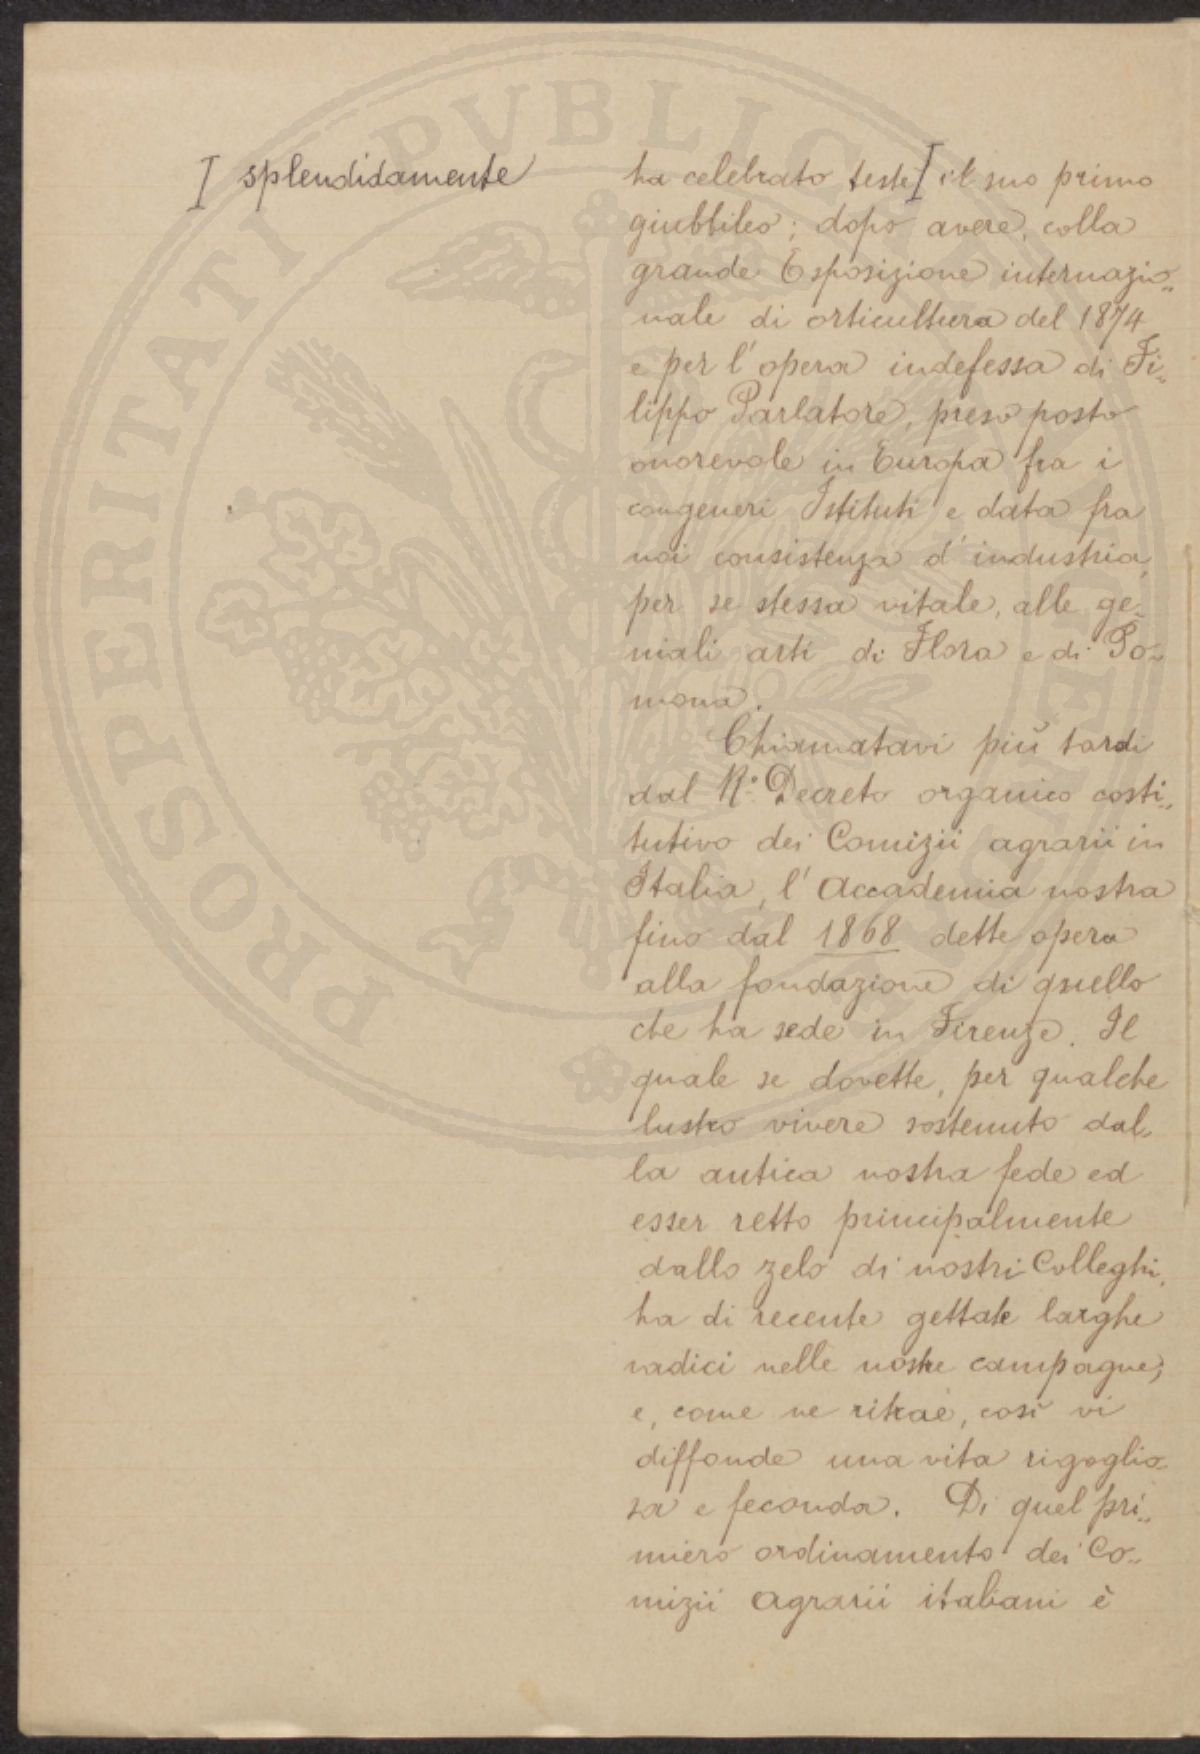 PROSPERITATI PVBLICAE AVGENDAE
I splendidamente
ha celebrato testè I il suo primo
giubbileo; dopo avere, colla
grande Esposizione internazio„
nale di orticultura del 1874
e per l'opera indefessa di Fi„
lippo Parlatore, preso posto
onorevole in Europa fra i
congeneri Istituti e data fra
noi consistenza d'industria,
per se stessa vitale, alle ge„
niali arti di Flora e di Po„
mona.
Chiamatavi più tardi
dal R.° Decreto organico costi„
tutivo dei Comizii agrarii in
Italia, l'Accademia nostra
fino dal 1868 dette opera
alla fondazione di quello
che ha sede in Firenze. Il
quale se dovette, per qualche
lustro vivere sostenuto dal„
la antica nostra fede ed
esser retto principalmente
dallo zelo di nostri Colleghi,
ha di recente gettate larghe
radici nelle nostre campagne;
e, come ne ritrae, così vi
diffonde una vita rigoglio„
sa e feconda. Di quel pri„
miero ordinamento dei Co„
mizii agrarii italiani è